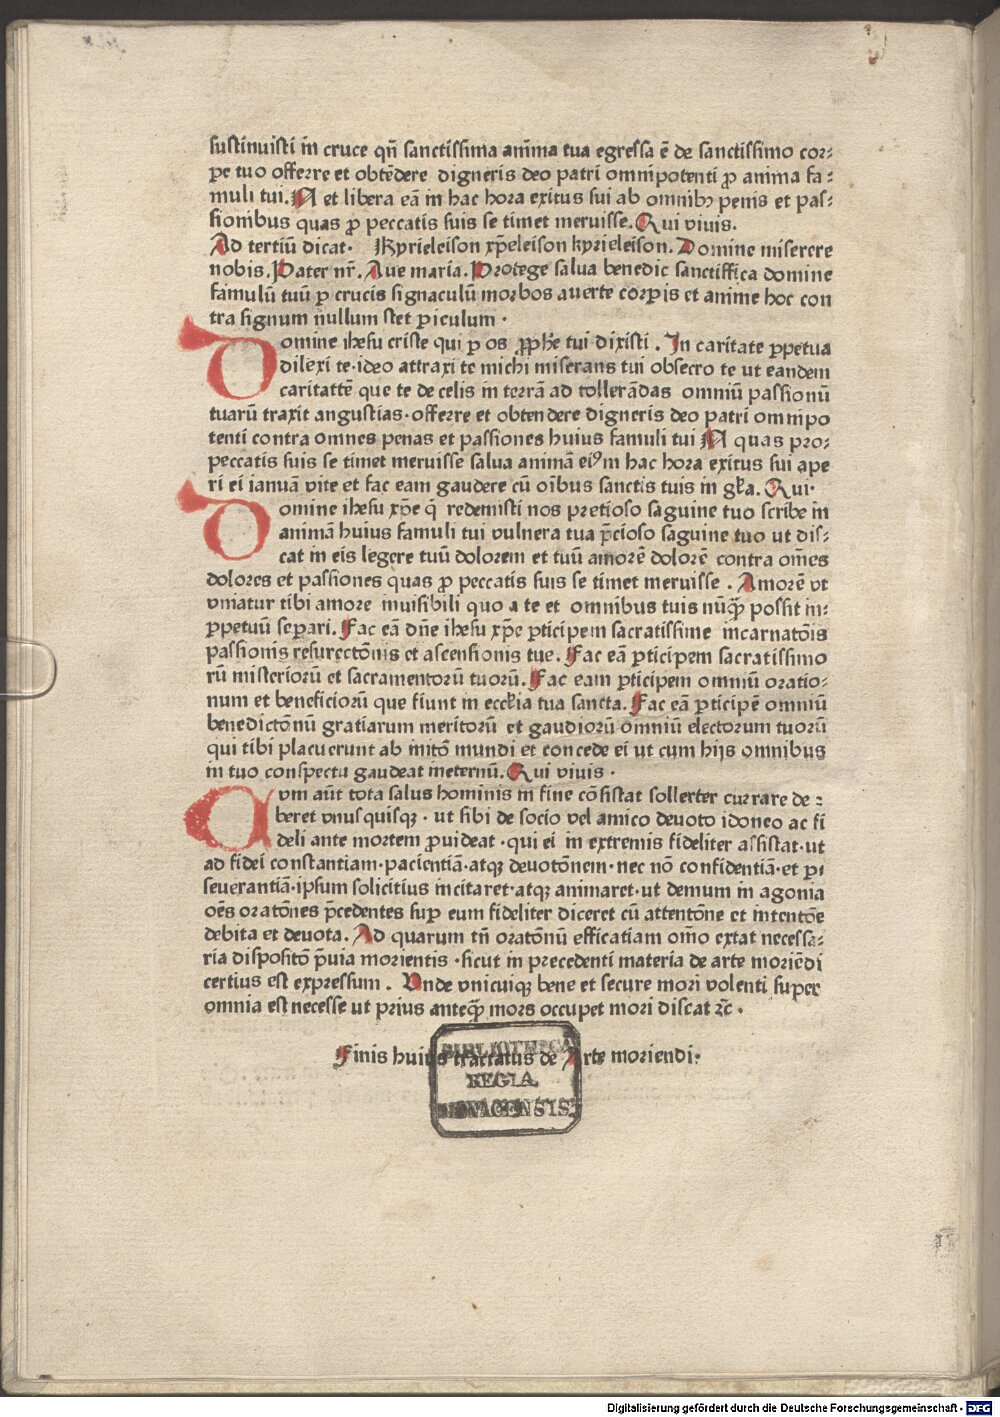 sustinuisti in cruce qñ sanctissima anima tua egressa ē de sanctissimo cor⸗
pe tuo offerre et obtēdere digneris deo patri omnipotenti ꝓ anima fa⸗
muli tui. N et libera eā in hac hora exitus sui ab omnibꝫ penis et pas⸗
sionibus quas ꝓ peccatis suis se timet meruisse. Qui viuis.
Ad tertiū dicat. Kyrieleison xp̄eleison kyrieleison. Domine miserere
nobis. Pater nr̄. Aue maria. Protege salua benedic sanctiffica domine
famulū tuū ꝑ crucis signaculū morbos auerte corꝑis et anime hoc con
tra signum nullum stet ꝑiculum.
Domine ihesu criste qui ꝑ os ꝓph̄e tui dixisti. In caritate ꝑpetua
dilexi te·ideo attraxi te michi miserans tui obsecro te ut eandem
caritattē que te de celis in terrā ad tollerādas omniū passionū
tuarū traxit angustias·offerre et obtendere digneris deo patri omnipo
tenti contra omnes penas et passiones huius famuli tui N quas pro⸗
peccatis suis se timet meruisse salua animā eiꝰ in hac hora exitus sui ape
ri ei ianuā vite et fac eam gaudere cū oībus sanctis tuis in gl̄ia. Qui·
Domine ihesu xp̄e q̄ redemisti nos pretioso saguine tuo scribe in
animā huius famuli tui vulnera tua p̄cioso saguine tuo ut dis⸗
cat in eis legere tuū dolorem et tuū amorē dolorē contra om̄es
dolores et passiones quas ꝓ peccatis suis se timet meruisse. Amorē vt
vniatur tibi amore inuisibili quo a te et omnibus tuis nūq̄ꝫ possit in⸗
ꝑpetuū seꝑari. Fac eā dn̄e ihesu xp̄e ꝑticipem sacratissime incarnatōis
passionis resurectōnis et ascensionis tue. Fac eā ꝑticipem sacratissimo
rū misteriorū et sacramentorū tuorū. Fac eam ꝑticipem omniū oratio⸗
num et beneficiorū que fiunt in eccl̄ia tua sancta. Fac eā ꝑticipē omniū
benedictōnū gratiarum meritorū et gaudiorū omniū electorum tuorū
qui tibi placuerunt ab initō mundi et concede ei ut cum hijs omnibus
in tuo conspectu gaudeat ineternū. Qui viuis·
Cum aūt tota salus hominis in fine cōsistat sollerter currare de⸗
beret vnusquisqꝫ·ut sibi de socio vel amico deuoto idoneo ac fi
deli ante mortem ꝓuideat·qui ei in extremis fideliter assistat·ut
ad fidei constantiam·pacientiā·atqꝫ deuotōnem·nec nō confidentiā·et ꝑ⸗
seuerantiā·ipsum solicitius incitaret·atqꝫ animaret·ut demum in agonia
oēs oratōnes p̄cedentes suꝑ eum fideliter diceret cū attentōne et intentōe
debita et deuota. Ad quarum tn̄ oratōnū efficatiam om̄o extat necessa⸗
ria dispositō p̄uia morientis·sicut in precedenti materia de arte moriēdi
certius est expressum. Vnde vnicuiqꝫ bene et secure mori volenti super
omnia est necesse ut prius anteq̄ꝫ mors occupet mori discat ⁊c̄.
Finis huius tractatus de Arte moriendi.
BIBLIOTHECA
REGIA
MONACENSIS
Digitalisierung gefördert durch die Deutsche Forschungsgemeinschaft - DFG